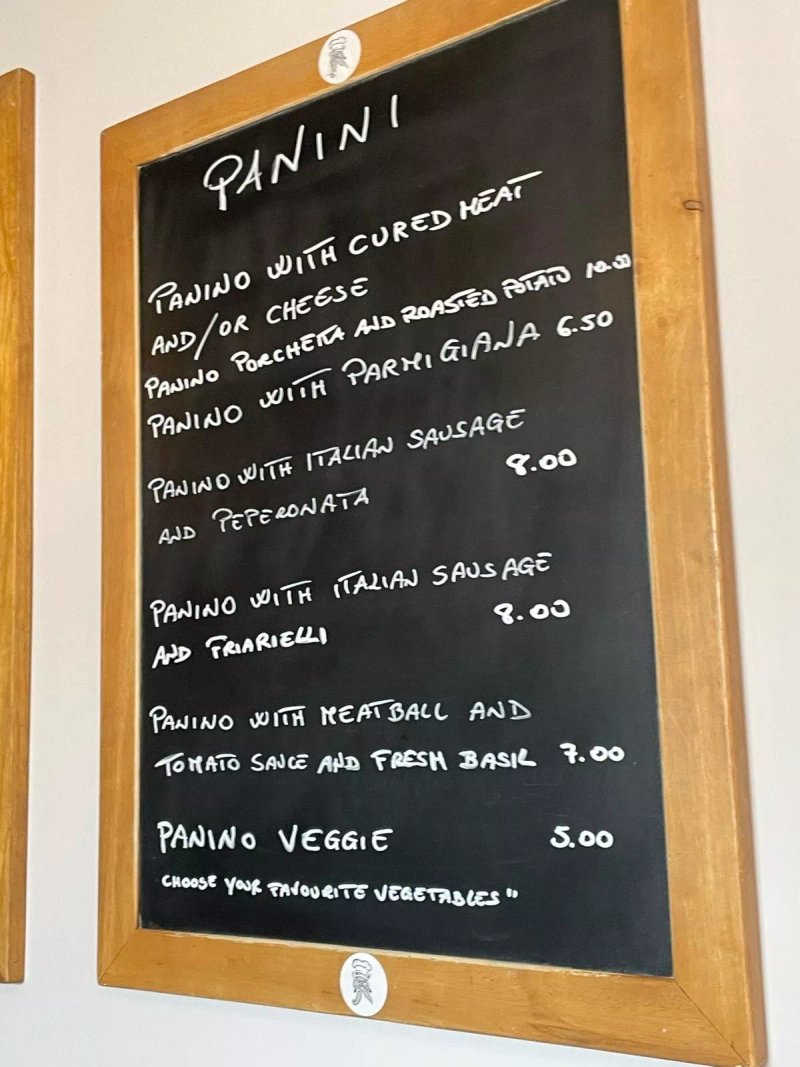 PANINI
PANINO WITH CURED MEAT
AND/OR CHEESE
PANINO PORCHETTA AND ROASTED POTATO 10.00
PANINO WITH PARMIGIANA 6.50
PANINO WITH ITALIAN SAUSAGE
AND PEPERONATA 8.00
PANINO WITH ITALIAN SAUSAGE
AND FRIARIELLI 8.00
PANINO WITH MEATBALL AND
TOMATO SAUCE AND FRESH BASIL 7.00
PANINO VEGGIE 5.00
CHOOSE YOUR FAVOURITE VEGETABLES"